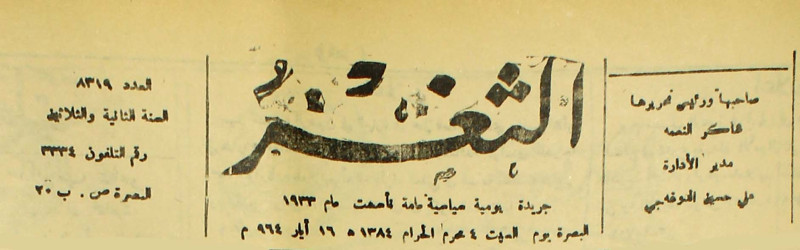 صاحبها ورئيس تحريرها
شاكر النعمه
مدير الأدارة
علي حسين
الثغر
جريدة يومية سياسية عامة تأسست عام ١٩٣٣
البصرة يوم السبت ٤ محرم الحرام ١٣٨٤ ه ١٦ أيار ٩٦٤ م
العدد ٨٣١٩
السنة الثانية والثلاثين
رقم التلفون ٣٣٣٤
البصرة ص . ب ٢٠